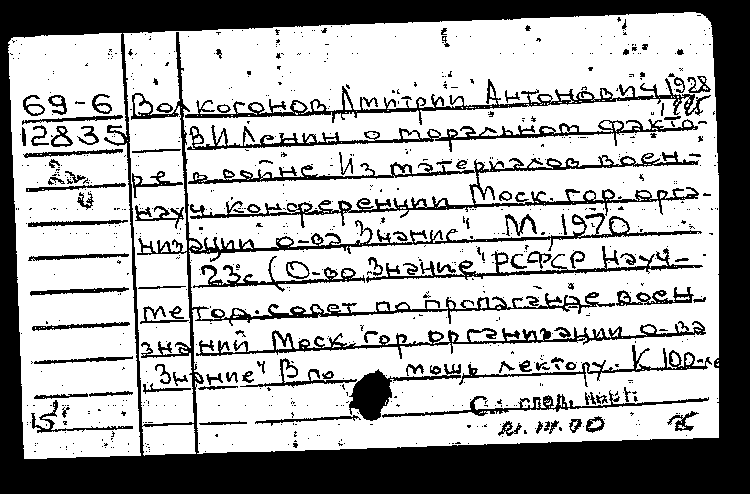 69-6 Волкогонов, Дмитрий Антонович 1928
12835 В.И. Ленин о моральном факто-
ре в войне. Из материалов воен.-
науч. конференции Моск. гор. орга-
низации о-ва "Знание". М., 1970.
23с (О-во "Знание" РСФСР Науч-
метод. совет по пропаганде воен.
знаний Моск. гор. организации о-ва
"Знание" В помощь лектору. К 100-ле